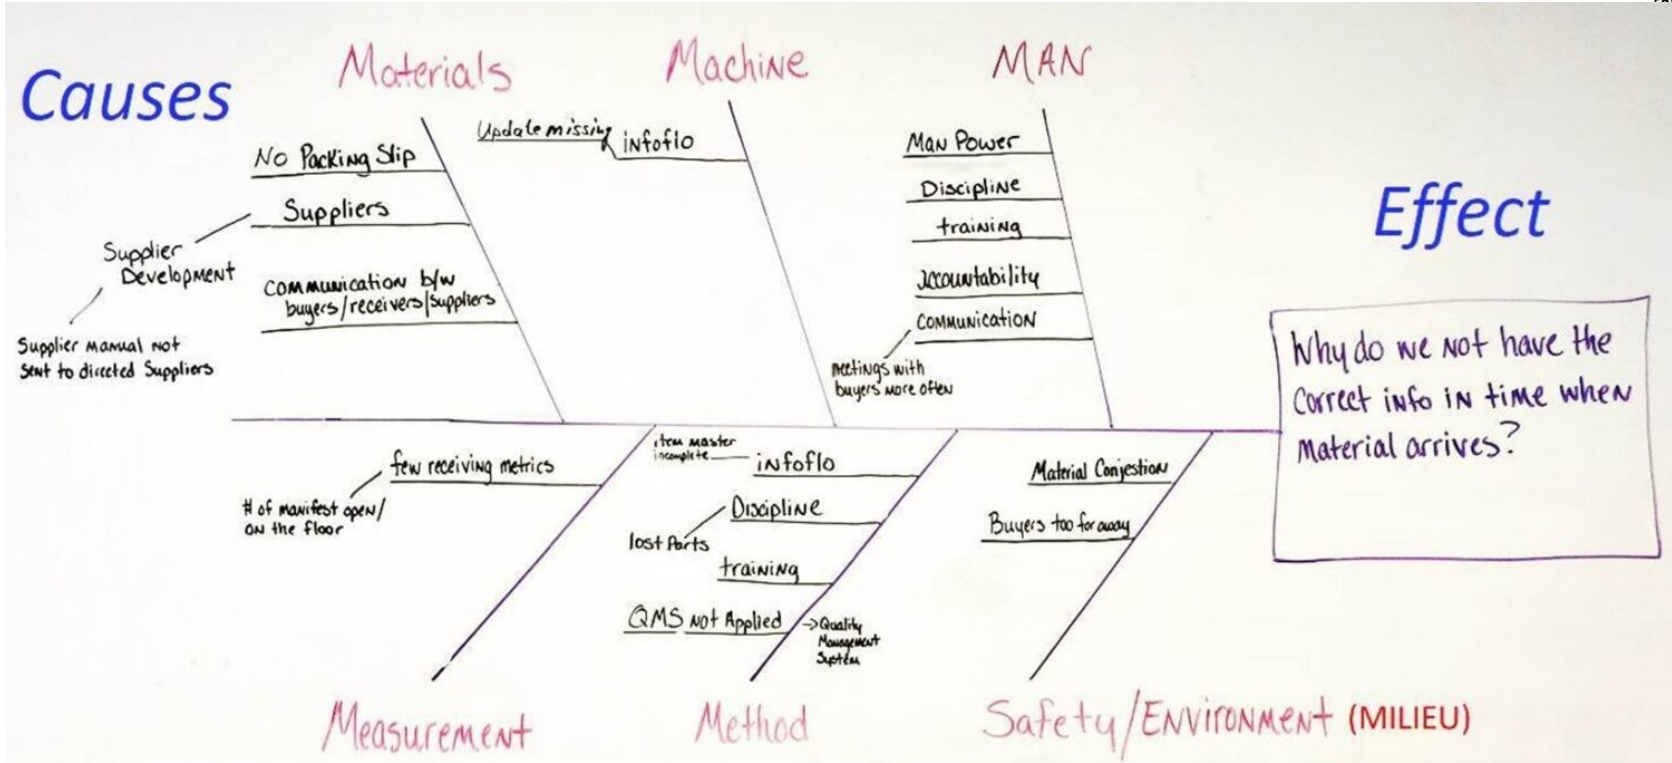 Causes
Materials
Machine
MAN
No Packing Slip
Suppliers
Supplier
Development
Supplier manual not
sent to directed Suppliers
Communication b/w
buyers/receivers/suppliers
Update missing
infoflo
Man Power
Discipline
training
accountability
communication
meetings with
buyers more often
Effect
Why do we not have the
correct info in time when
Material arrives?
few receiving metrics
# of manifest open/
on the floor
item master
incomplete
infoflo
Discipline
lost Parts
training
QMS not Applied
→ Quality
Management
System
Material Conjestion
Buyers too far away
Measurement
Method
Safety/Environment (MILIEU)